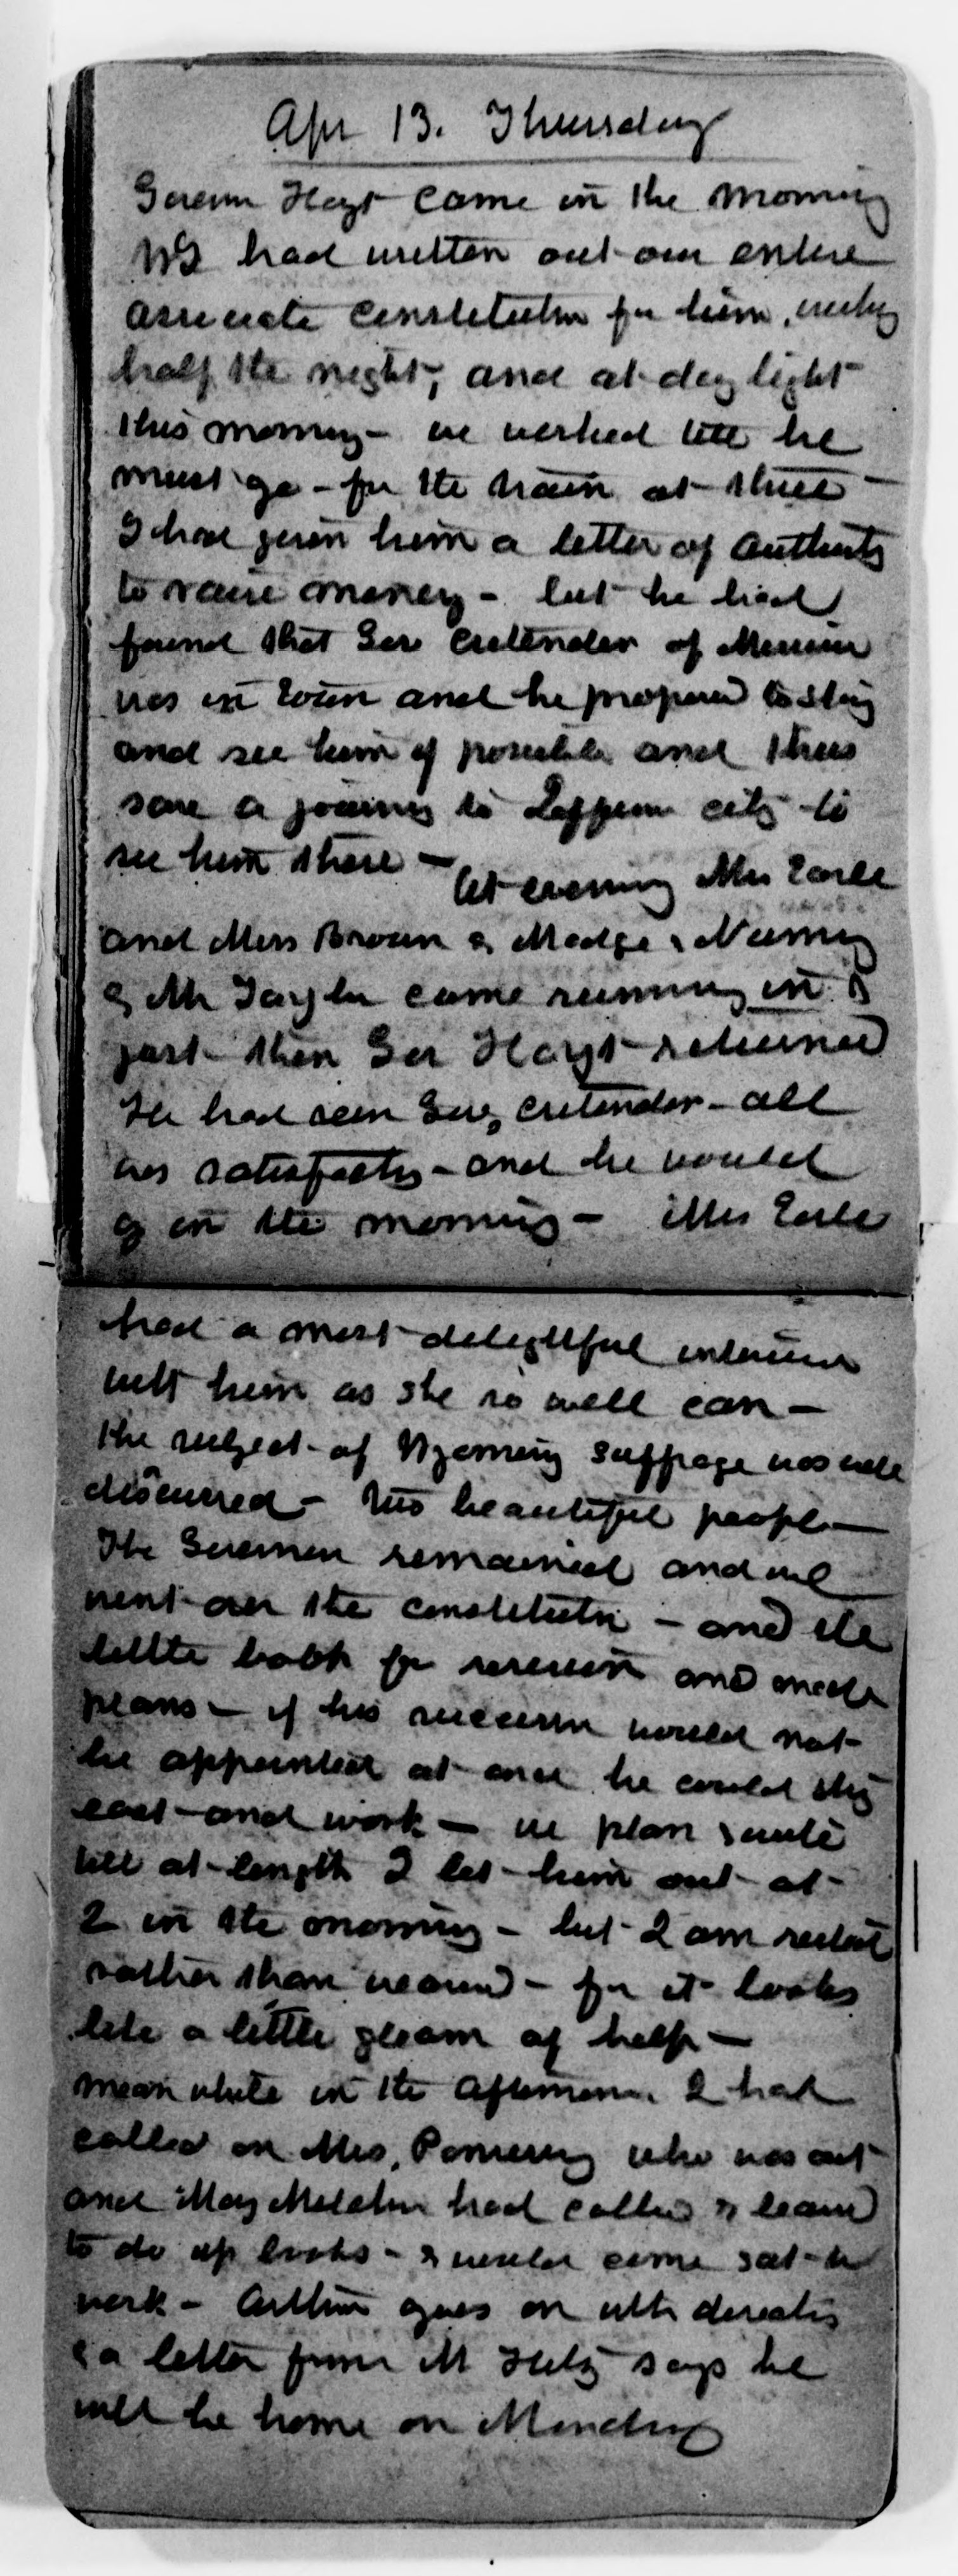 Apr 13. Thursday
Govern Hoyt came in the morning
We had written out our entire
associate constitution for him, writing
half the night, and at daylight
this morning - we worked till he
must go - for the train at three -
I had given him a letter of authority
to raise money - but he had
found that Gov Crittenden of Missouri
was in town and he proposed to stay
and see him if possible and thus
save a journey to Jefferson city to
see him there - At evening Mrs Earle
and Miss Brown & Madge &
& Mr Taylor came running in &
just then Gov Hoyt returned
He had seen Gov, Crittenden - all
was satisfactory - and he would
go in the morning - Mrs Earle
had a most delightful interview
with him as she so well can -
the subject of Wyoming suffrage was well
discussed - two beautiful people -
The Governor remained and we
went over the constitution - and the
little book for revision and made
plans - if his successor would not
be appointed at once he could stay
east and work - we plan & write
till at length I let him out at
2 in the morning - but I am rested
rather than wearied - for it looks
like a little gleam of help -
mean while in the afternoon I had
called on Mrs, Pomeroy who was out
and May had called to learn
to do up books - & would come sat - to
work - Arthur goes on with
& a letter from Mr says he
will be home on Monday